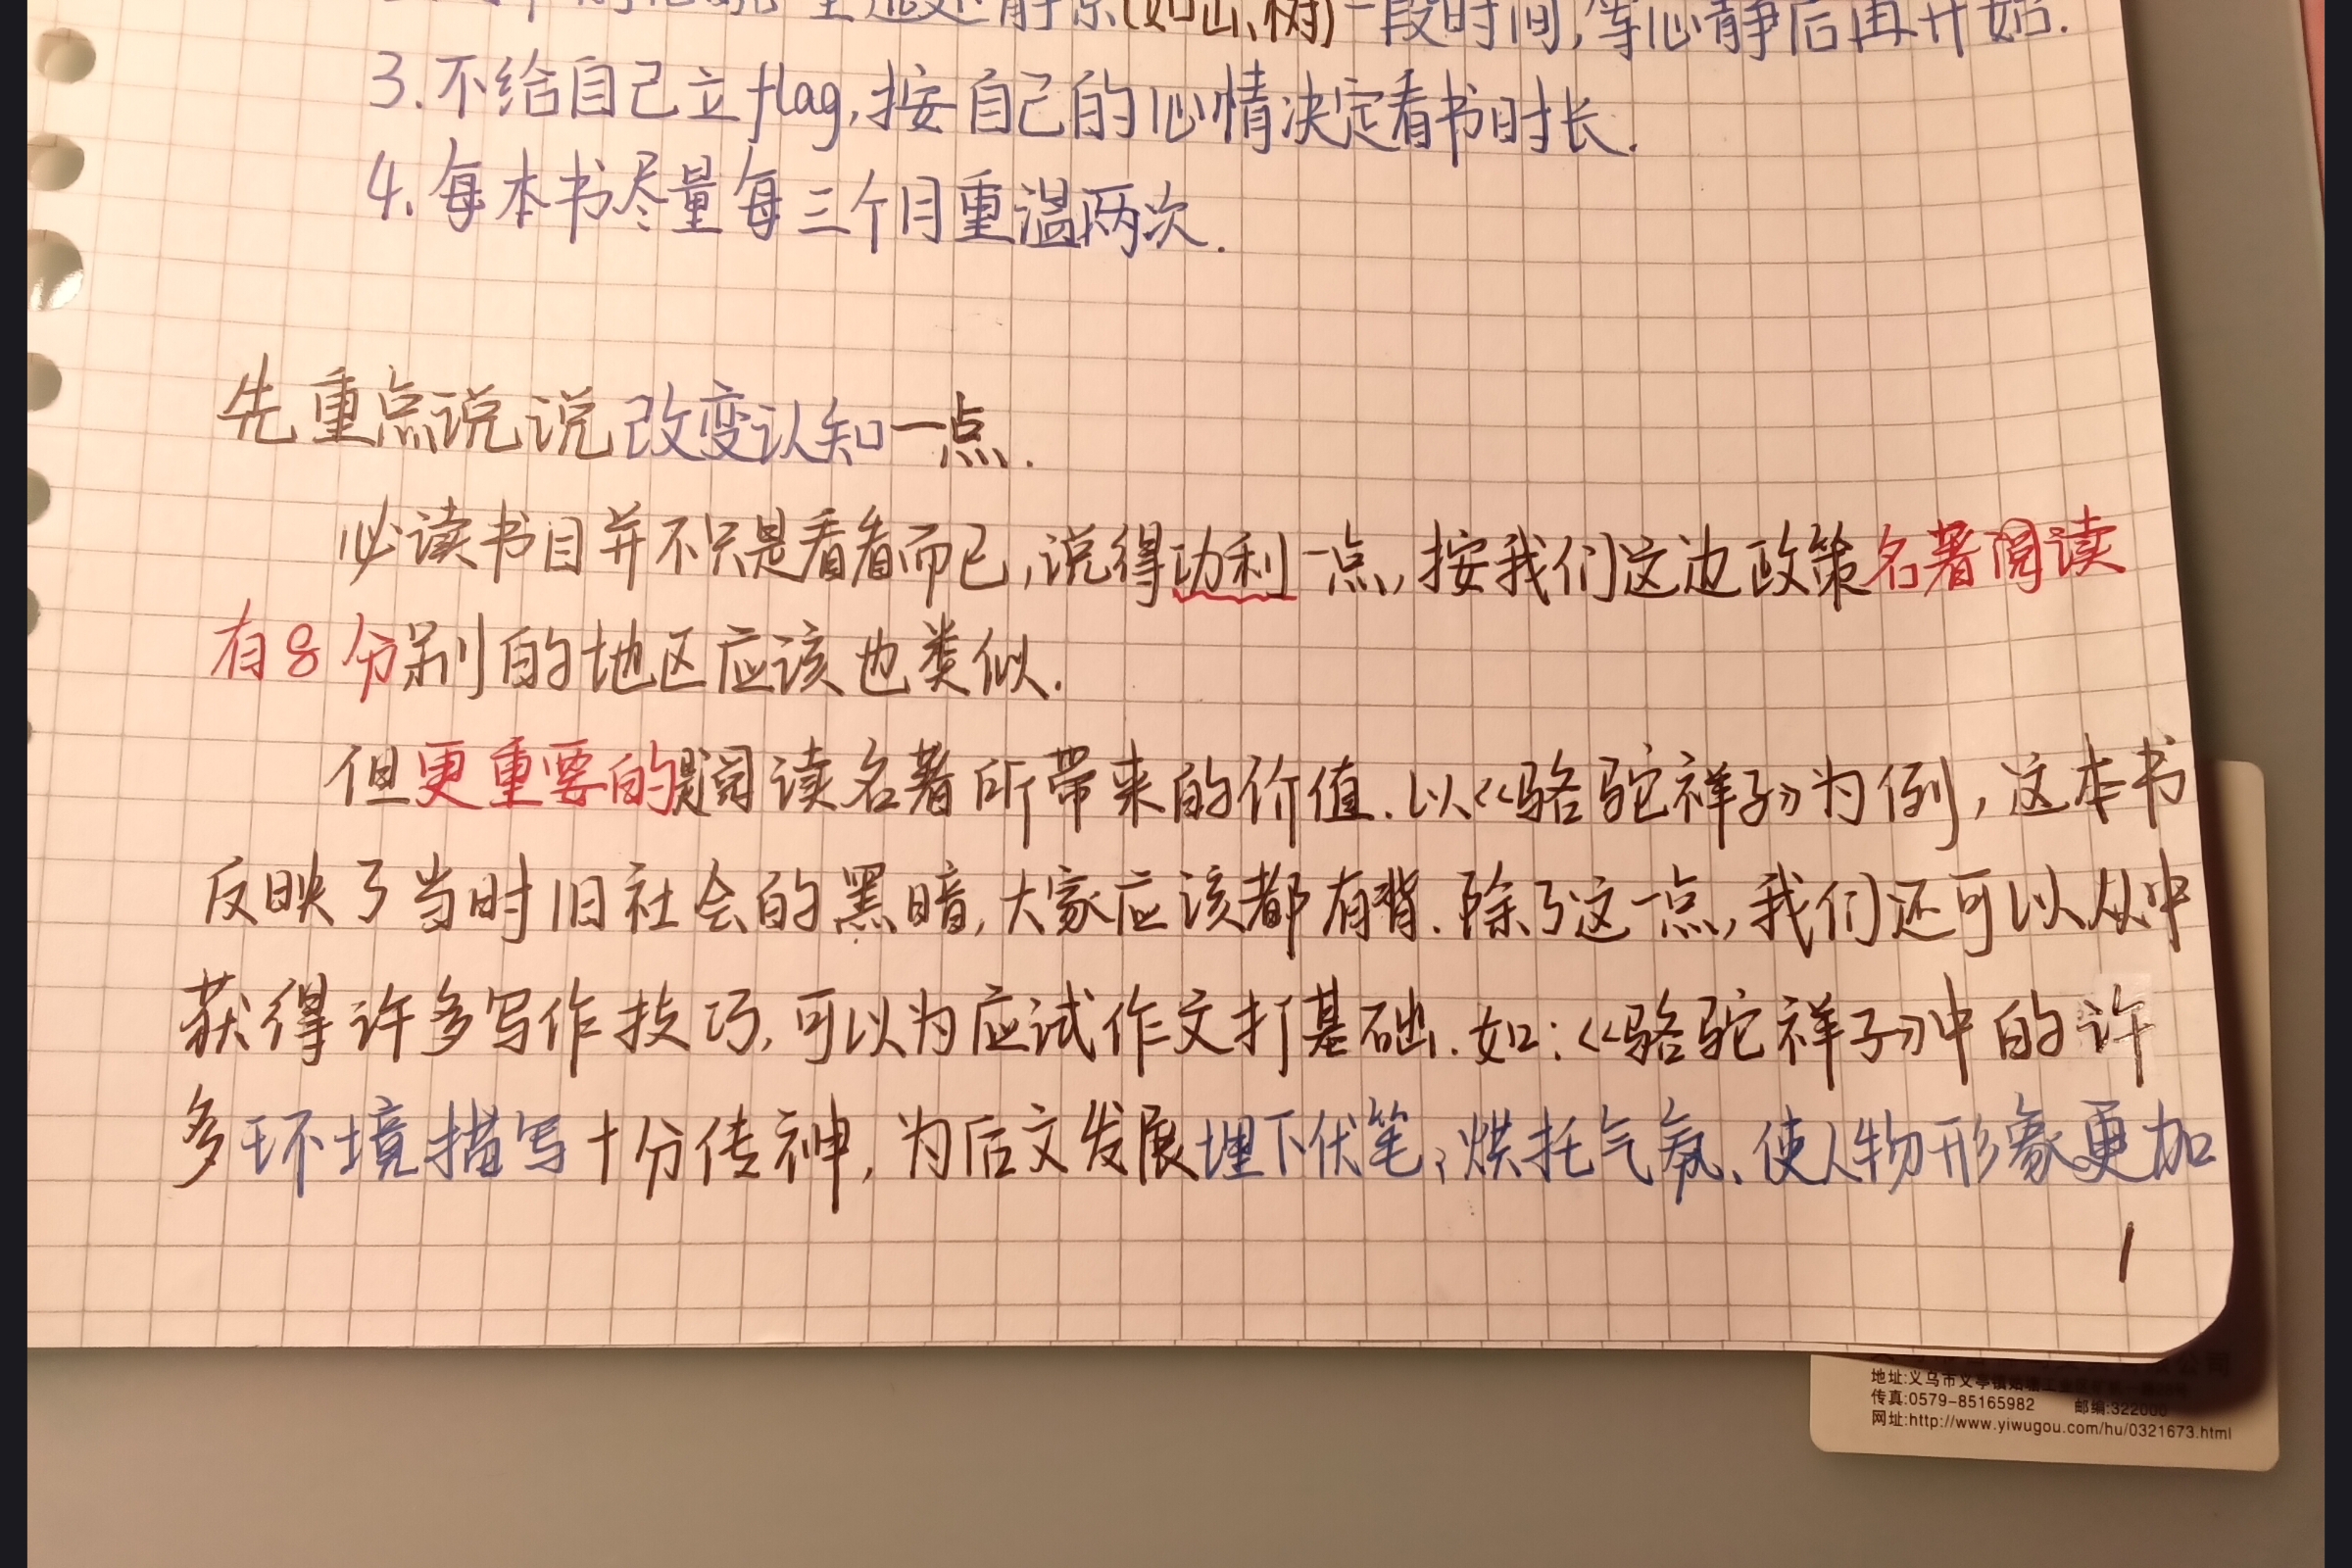 静景(如山、树)一段时间,等心静后再开始.
3.不给自己立flag,按自己的心情决定看书时长.
4.每本书尽量每三个月重温两次.
先重点说说改变认知一点.
必读书目并不只是看看而已,说得功利一点,按我们这边政策名著阅读
有8分别的地区应该也类似.
但更重要的是阅读名著所带来的价值.以《骆驼祥子》为例,这本书
反映了当时旧社会的黑暗,大家应该都有背.除了这一点,我们还可以从中
获得许多写作技巧,可以为应试作文打基础.如:《骆驼祥子》中的许
多环境描写十分传神,为后文发展埋下伏笔,烘托气氛、使人物形象更加
1
公司
地址:义乌市义亭镇
传真:0579-85165982 邮编:322000
网址:http://www.yiwugou.com/hu/0321673.html